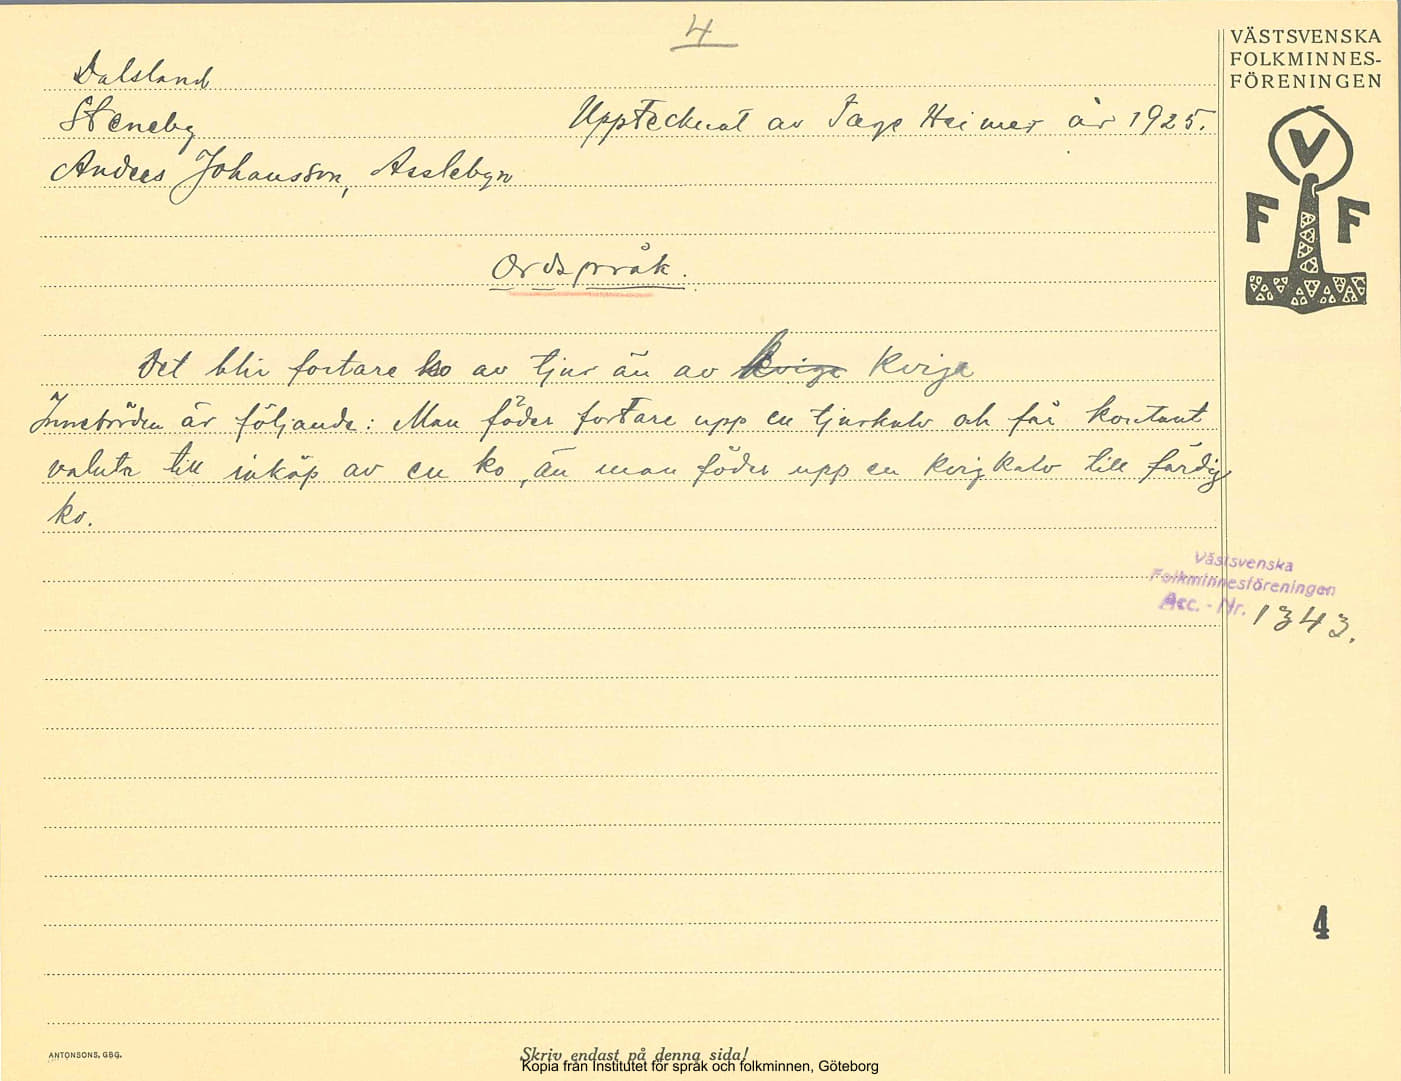 4
VÄSTSVENSKA
FOLKMINNES-
FÖRENINGEN
V
F F
Dalsland
Steneby
Upptecknat av Tage Heimer år 1925.
Anders Johansson, Asslebyn
Ordspråk.
Det blir fortare ko av tjur än av kviga Kviga
Innebörden är följande: Man föder fortare upp en tjurkalv och får kontant
valuta till inköp av en ko, än man föder upp en kvigkalv till färdig
ko.
Västsvenska
Folkminnesföreningen
Acc. - Nr. 1343.
4
ANTONSONS, GBG.
Skriv endast på denna sida!
Kopia från Institutet för språk och folkminnen, Göteborg